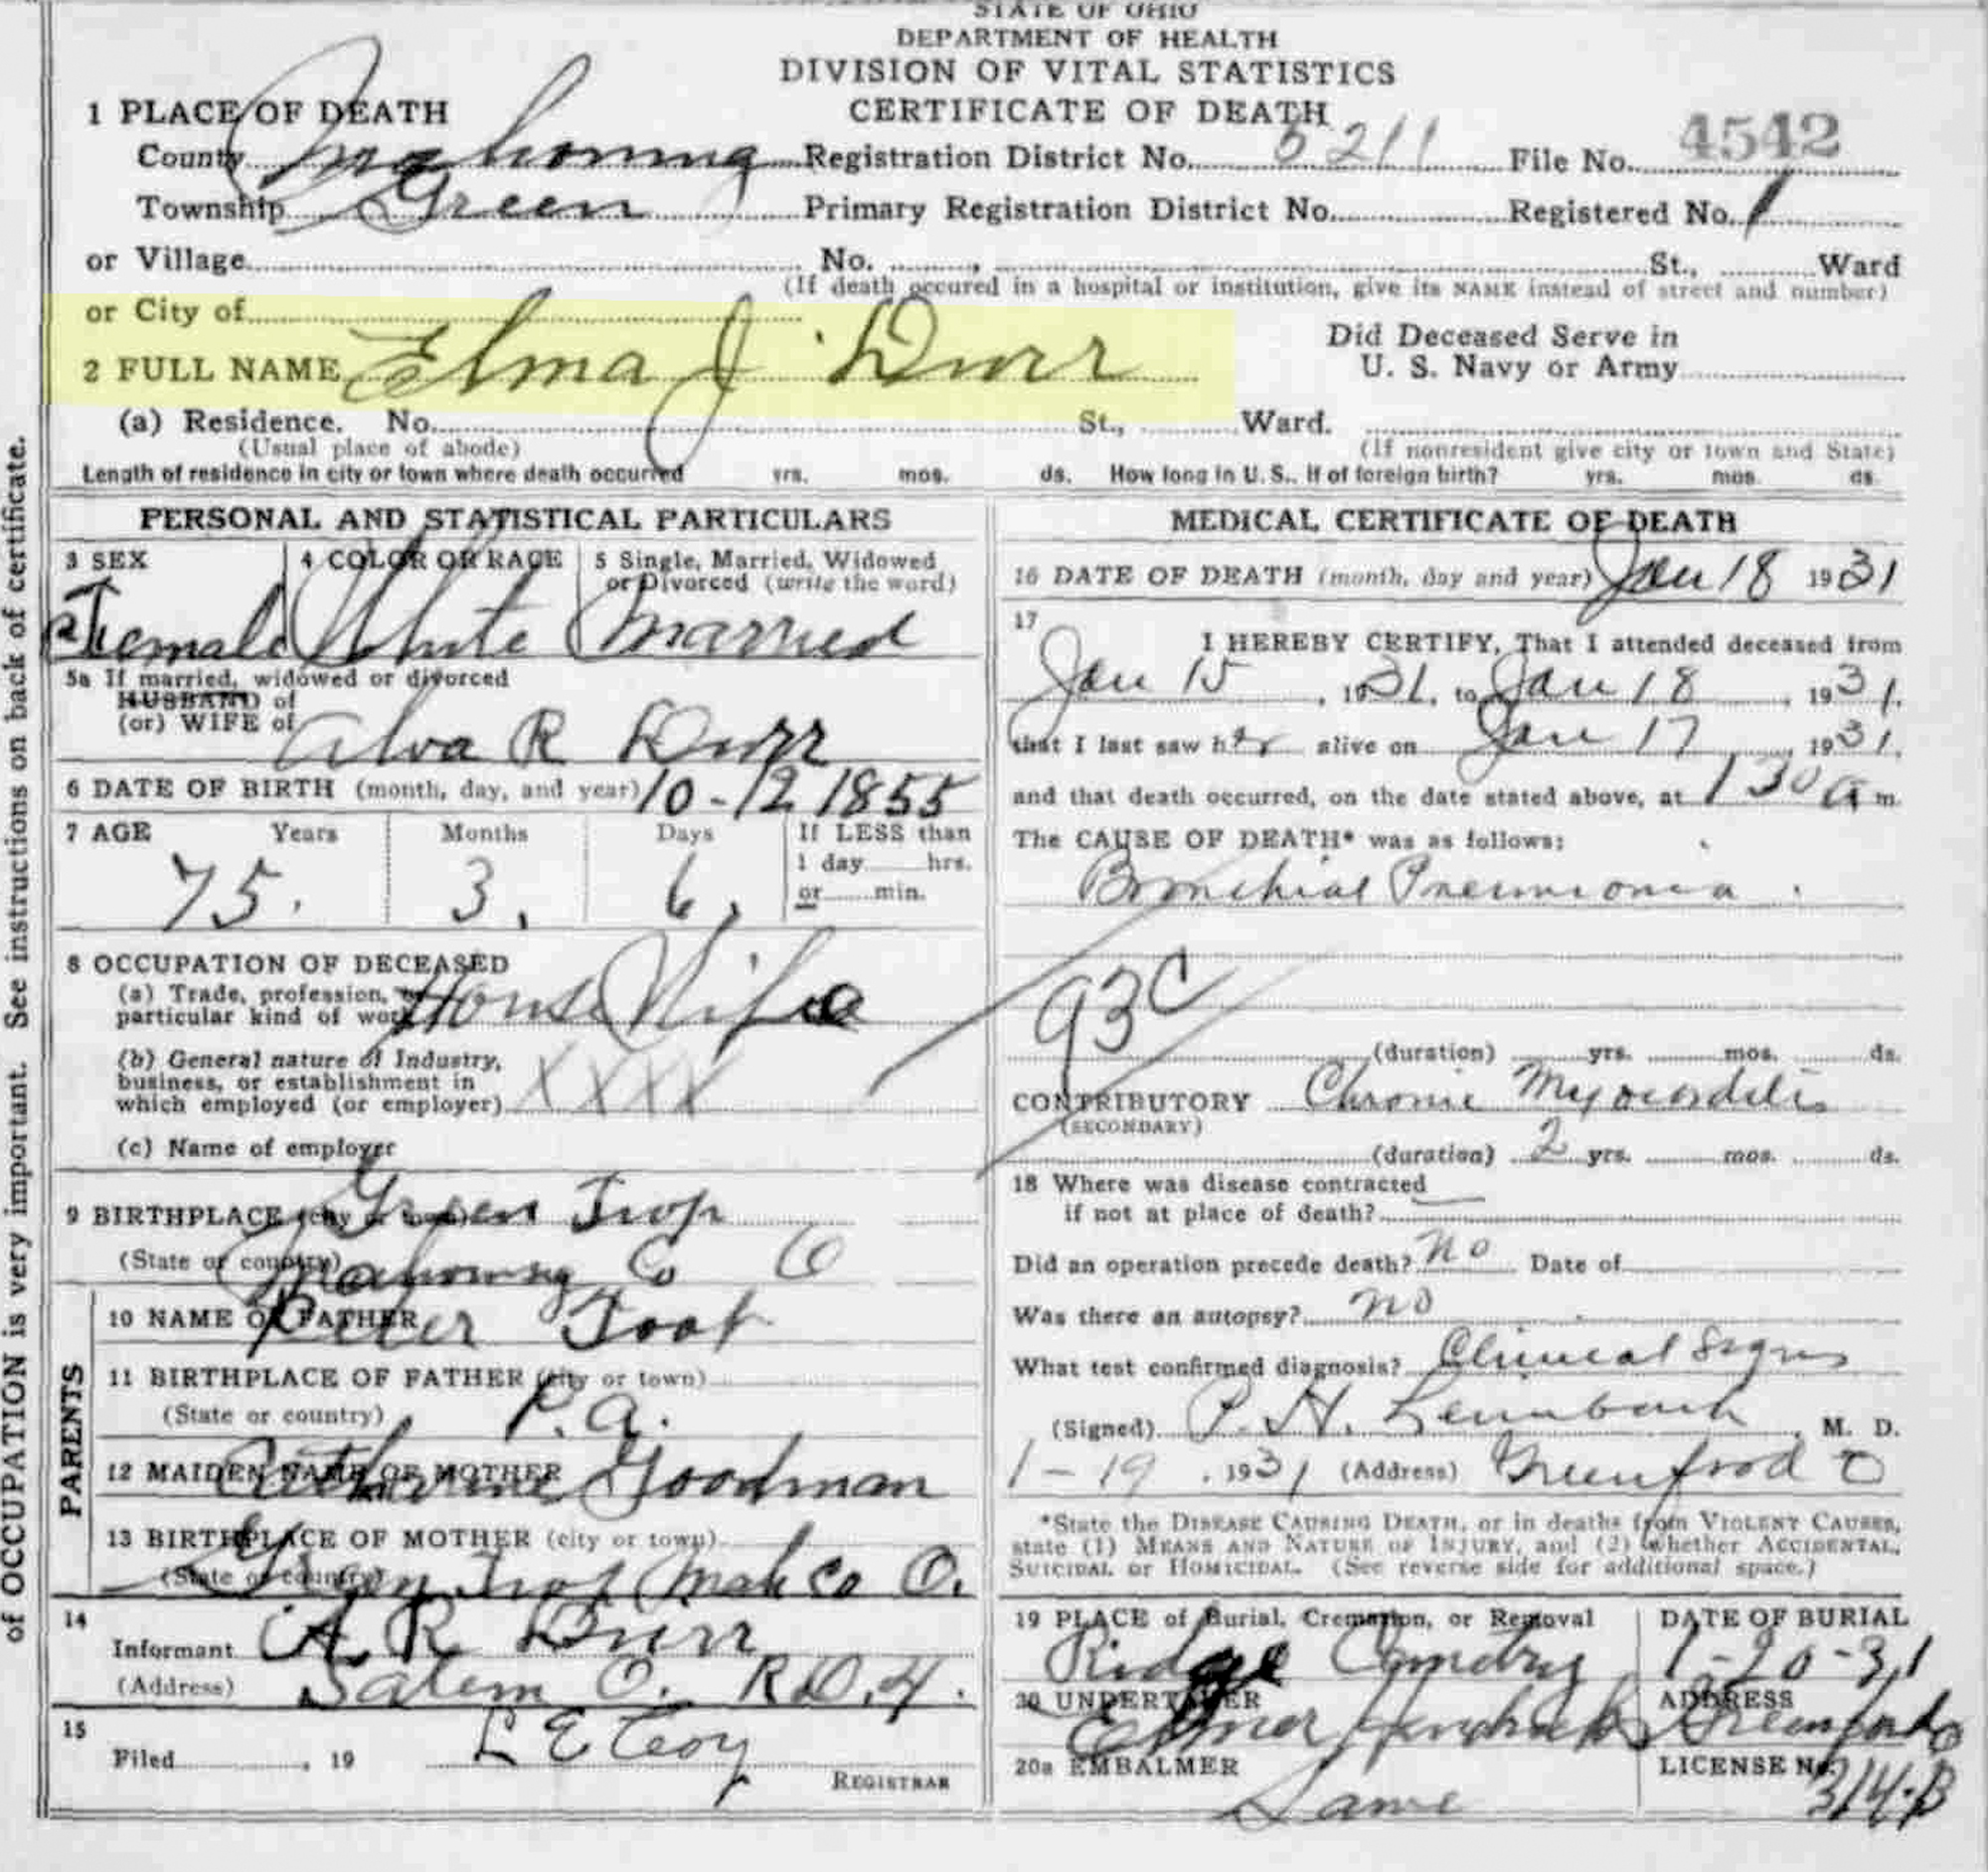 STATE OF OHIO
DEPARTMENT OF HEALTH
DIVISION OF VITAL STATISTICS
CERTIFICATE OF DEATH
1 PLACE OF DEATH
County Mahoning Registration District No. 5211 File No. 4542
Township Green Primary Registration District No. Registered No. 1
or Village No. , St., Ward
(If death occured in a hospital or institution, give its NAME instead of street and number)
or City of
Did Deceased Serve in
U. S. Navy or Army
2 FULL NAME Elma J Durr
(a) Residence. No. St., Ward.
(Usual place of abode) (If nonresident give city or town and State)
Length of residence in city or town where death occurred yrs. mos. ds. How long in U. S., if of foreign birth? yrs. mos. ds.
of OCCUPATION is very important. See instructions on back of certificate.
PERSONAL AND STATISTICAL PARTICULARS
3 SEX 4 COLOR OR RACE 5 Single, Married, Widowed
or Divorced (write the word)
Female White Married
5a If married, widowed or divorced
HUSBAND of
(or) WIFE of Alva R Durr
6 DATE OF BIRTH (month, day, and year) 10-12 1855
7 AGE Years Months Days If LESS than
1 day hrs.
or min.
75. 3. 6,
8 OCCUPATION OF DECEASED
(a) Trade, profession, or
particular kind of work House Wife
(b) General nature of Industry,
business, or establishment in
which employed (or employer) XXXX
(c) Name of employer
9 BIRTHPLACE (city or town) Green Twp
(State or country) Mahoning Co O
PARENTS
10 NAME OF FATHER Peter Toot
11 BIRTHPLACE OF FATHER (city or town)
(State or country) P.a.
12 MAIDEN NAME OF MOTHER Catherine Goodman
13 BIRTHPLACE OF MOTHER (city or town)
(State or country) Green Twp Mah Co O.
14
Informant A R Durr
(Address) Salem O. R.D.4.
15
Filed , 19 L E Coy
REGISTRAR
MEDICAL CERTIFICATE OF DEATH
16 DATE OF DEATH (month, day and year) Jan 18 1931
17
I HEREBY CERTIFY, That I attended deceased from
Jan 15 , 1931, to Jan 18 , 1931.
that I last saw her alive on Jan 17 , 1931.
and that death occurred, on the date stated above, at 1 30 a m.
The CAUSE OF DEATH* was as follows:
Bronchial Pneumonia
93C
(duration) yrs. mos. ds.
CONTRIBUTORY Chronic Myocarditis
(SECONDARY)
(duration) 2 yrs. mos. ds.
18 Where was disease contracted
if not at place of death?
Did an operation precede death? no Date of
Was there an autopsy? no
What test confirmed diagnosis? Clinical Signs
(Signed) P. H. Leimbach , M. D.
1-19 , 1931 (Address) Greenfrod O
*State the DISEASE CAUSING DEATH, or in deaths from VIOLENT CAUSES,
state (1) MEANS AND NATURE OF INJURY, and (2) whether ACCIDENTAL,
SUICIDAL or HOMICIDAL. (See reverse side for additional space.)
19 PLACE of Burial, Cremation, or Removal DATE OF BURIAL
Ridge Cemetry 1-20-31
20 UNDERTAKER ADDRESS
Elmer Greenford O
20a EMBALMER LICENSE No.
Same 314-B